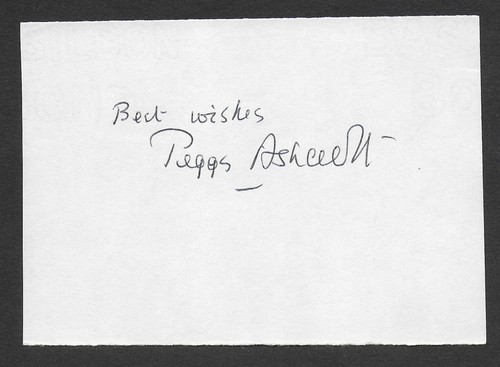 Best wishes
Peggy Ashcroft